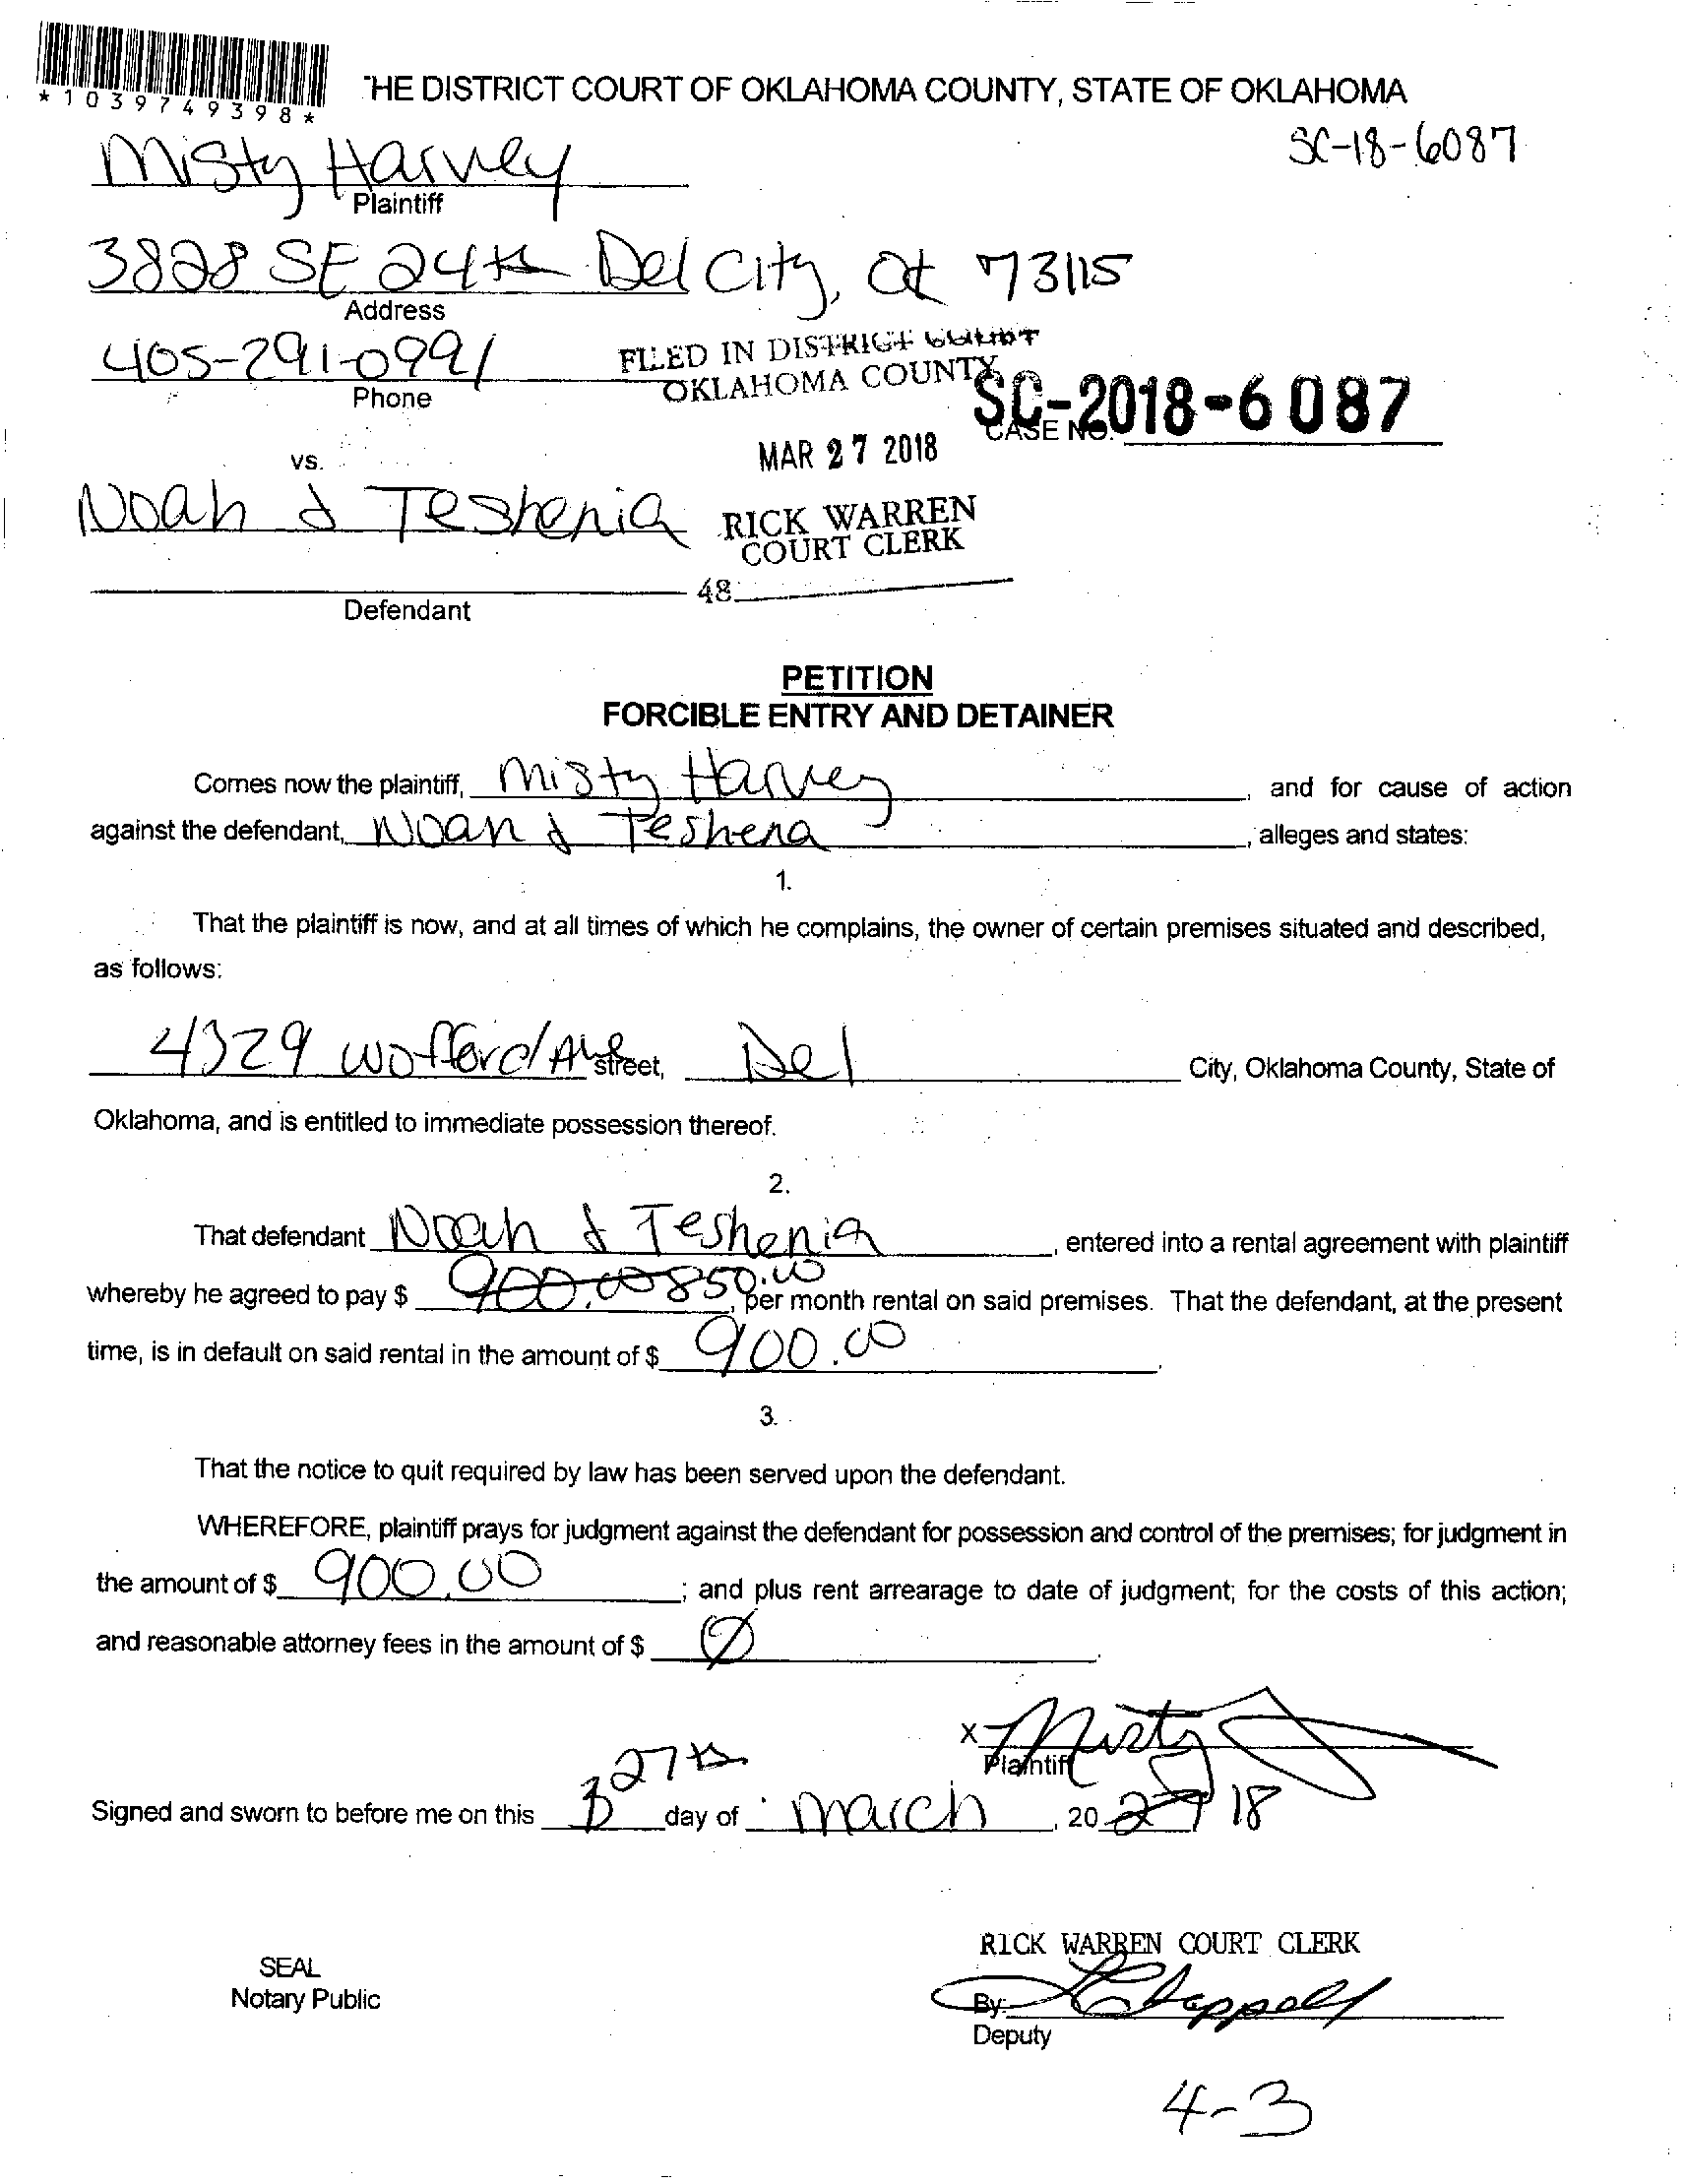 *1039749398*
THE DISTRICT COURT OF OKLAHOMA COUNTY, STATE OF OKLAHOMA
SC-18-6087
Misty Harvey
Plaintiff
3828 SE 24th Del City, OK 73115
Address
405-291-0991
Phone
FILED IN DISTRICT COURT
OKLAHOMA COUNTY
SC-2018-6087
CASE NO.
MAR 27 2018
vs.
Noah & Teshenia
RICK WARREN
COURT CLERK
48
Defendant
PETITION
FORCIBLE ENTRY AND DETAINER
Comes now the plaintiff, Misty Harvey, and for cause of action
against the defendant, Noah & Teshena, alleges and states:
1.
That the plaintiff is now, and at all times of which he complains, the owner of certain premises situated and described,
as follows:
4329 Wofford Ave street, Del City, Oklahoma County, State of
Oklahoma, and is entitled to immediate possession thereof.
2.
That defendant Noah & Teshenia, entered into a rental agreement with plaintiff
whereby he agreed to pay $ 900.00 850.00, per month rental on said premises. That the defendant, at the present
time, is in default on said rental in the amount of $ 900.00.
3.
That the notice to quit required by law has been served upon the defendant.
WHEREFORE, plaintiff prays for judgment against the defendant for possession and control of the premises; for judgment in
the amount of $ 900.00; and plus rent arrearage to date of judgment; for the costs of this action;
and reasonable attorney fees in the amount of $ Ø.
x Misty
Plaintiff
27th
Signed and sworn to before me on this day of March, 20 27 18
RICK WARREN COURT CLERK
SEAL
Notary Public
By:
Deputy
4-3